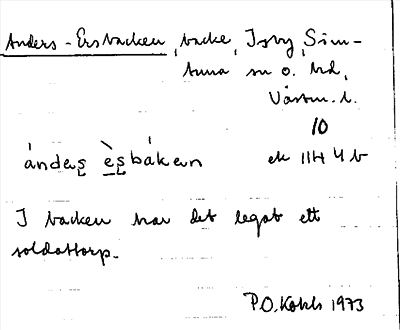 Anders-Ersbacken, backe, Isby, Sim-
tuna sn o. hd,
Västm. l.
10
ándes̨ ès̨báken ek 11H 4b
I backen har det legat ett
soldattorp.
P.O. Kohls 1973